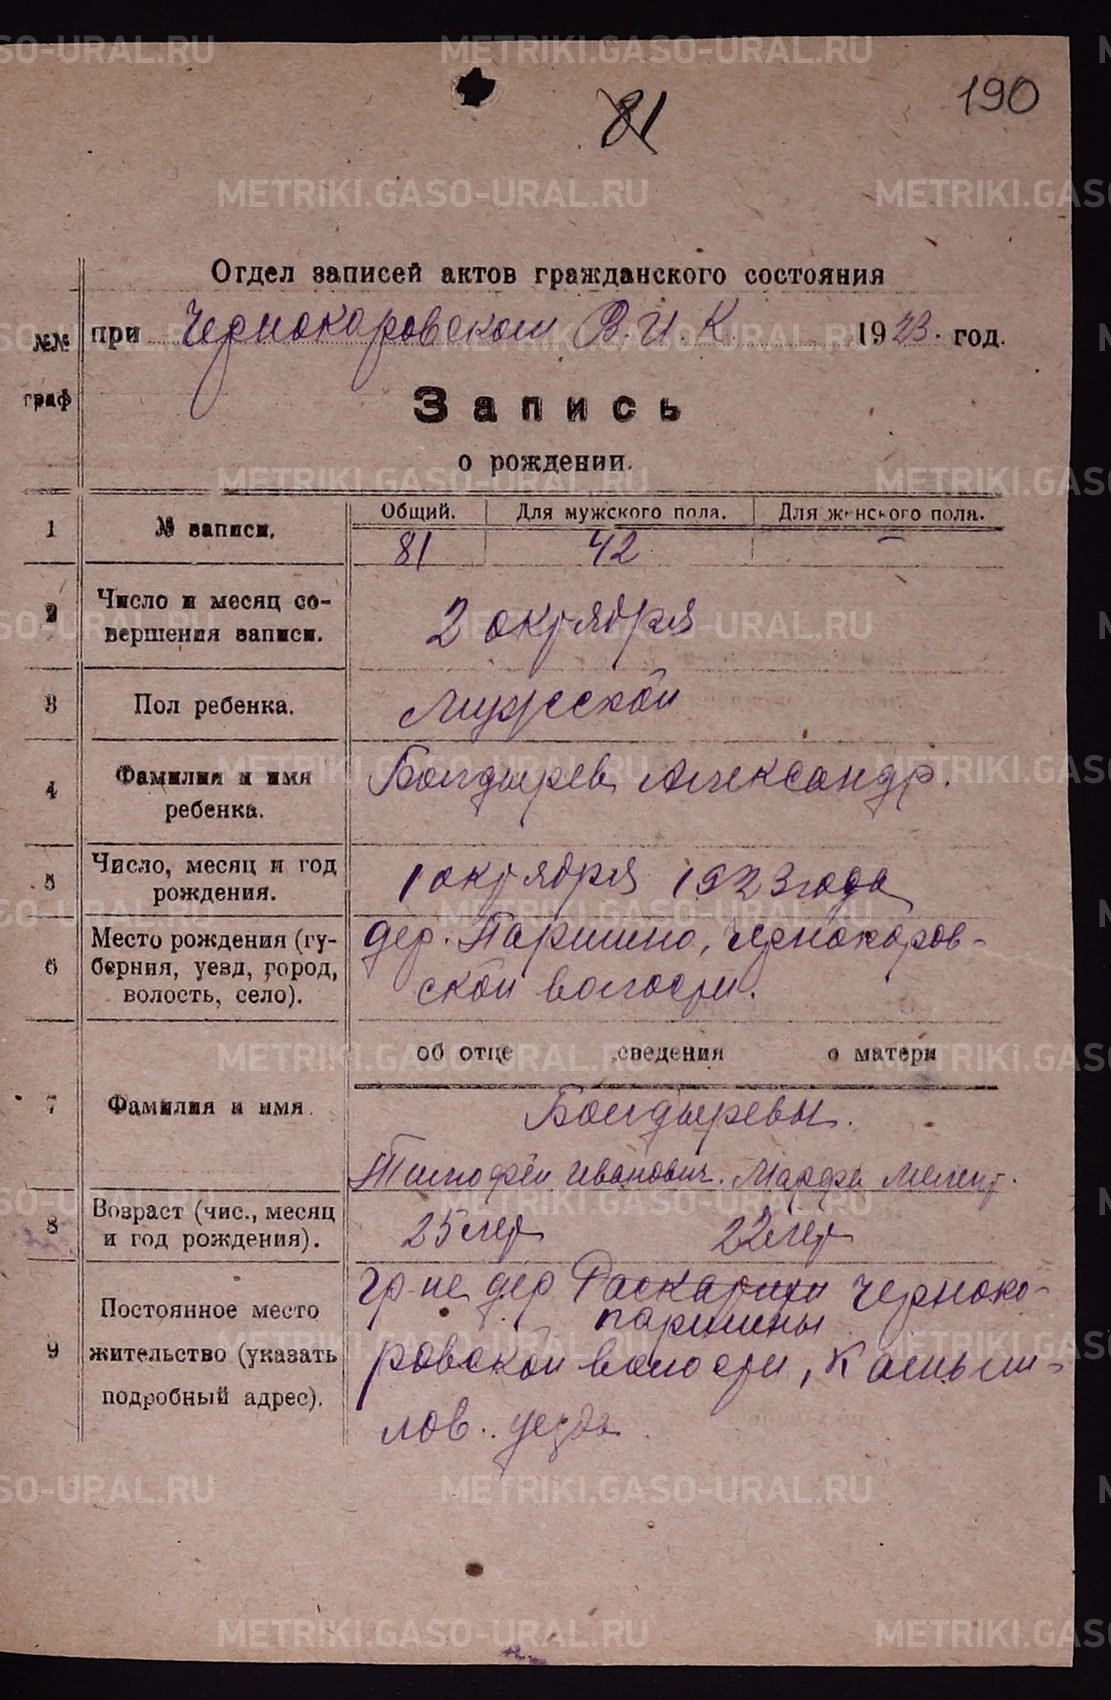 81
190
Отдел записей актов гражданского состояния
при Чернокоровском В.И.К. 1923. год.
№№ граф
Запись
о рождении.
1 № записи. Общий. Для мужского пола. Для женского пола.
81 42 —
2 Число и месяц со-
вершения записи. 2 октября
3 Пол ребенка. мужской
4 Фамилия и имя
ребенка. Болдырев Александр.
5 Число, месяц и год
рождения. 1 октября 1923 года
6 Место рождения (гу-
берния, уезд, город,
волость, село). дер. Паршино, Чернокоров-
ской волости.
об отце сведения о матери
7 Фамилия и имя. Болдыревы.
Тимофей Иванович. Марфа Мелент.
8 Возраст (чис., месяц
и год рождения). 25 лет 22 лет
9 Постоянное место
жительство (указать
подробный адрес). гр-не дер Раскатихи Черноко-
паршины
ровской волости, Камыш-
лов. уезда.
METRIKI.GASO-URAL.RU